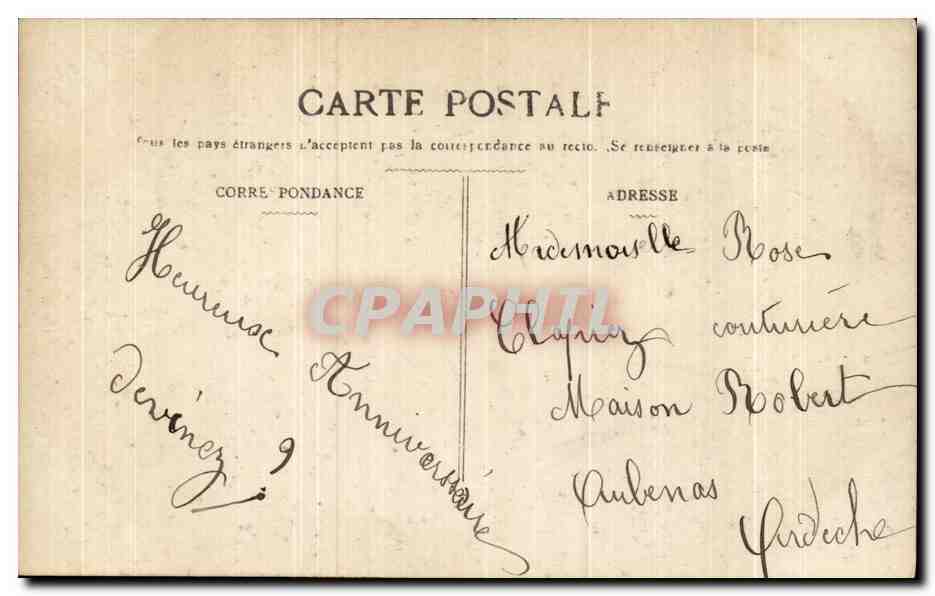 CARTE POSTALE
Tous les pays étrangers n'acceptent pas la correspondance au recto. Se renseigner à la poste
CORRESPONDANCE
ADRESSE
Heureuse
Anniverssaire
devinez ?
Mademoiselle Rose
couturière
Maison Robert
Aubenas
Ardèche
CPAPHIL